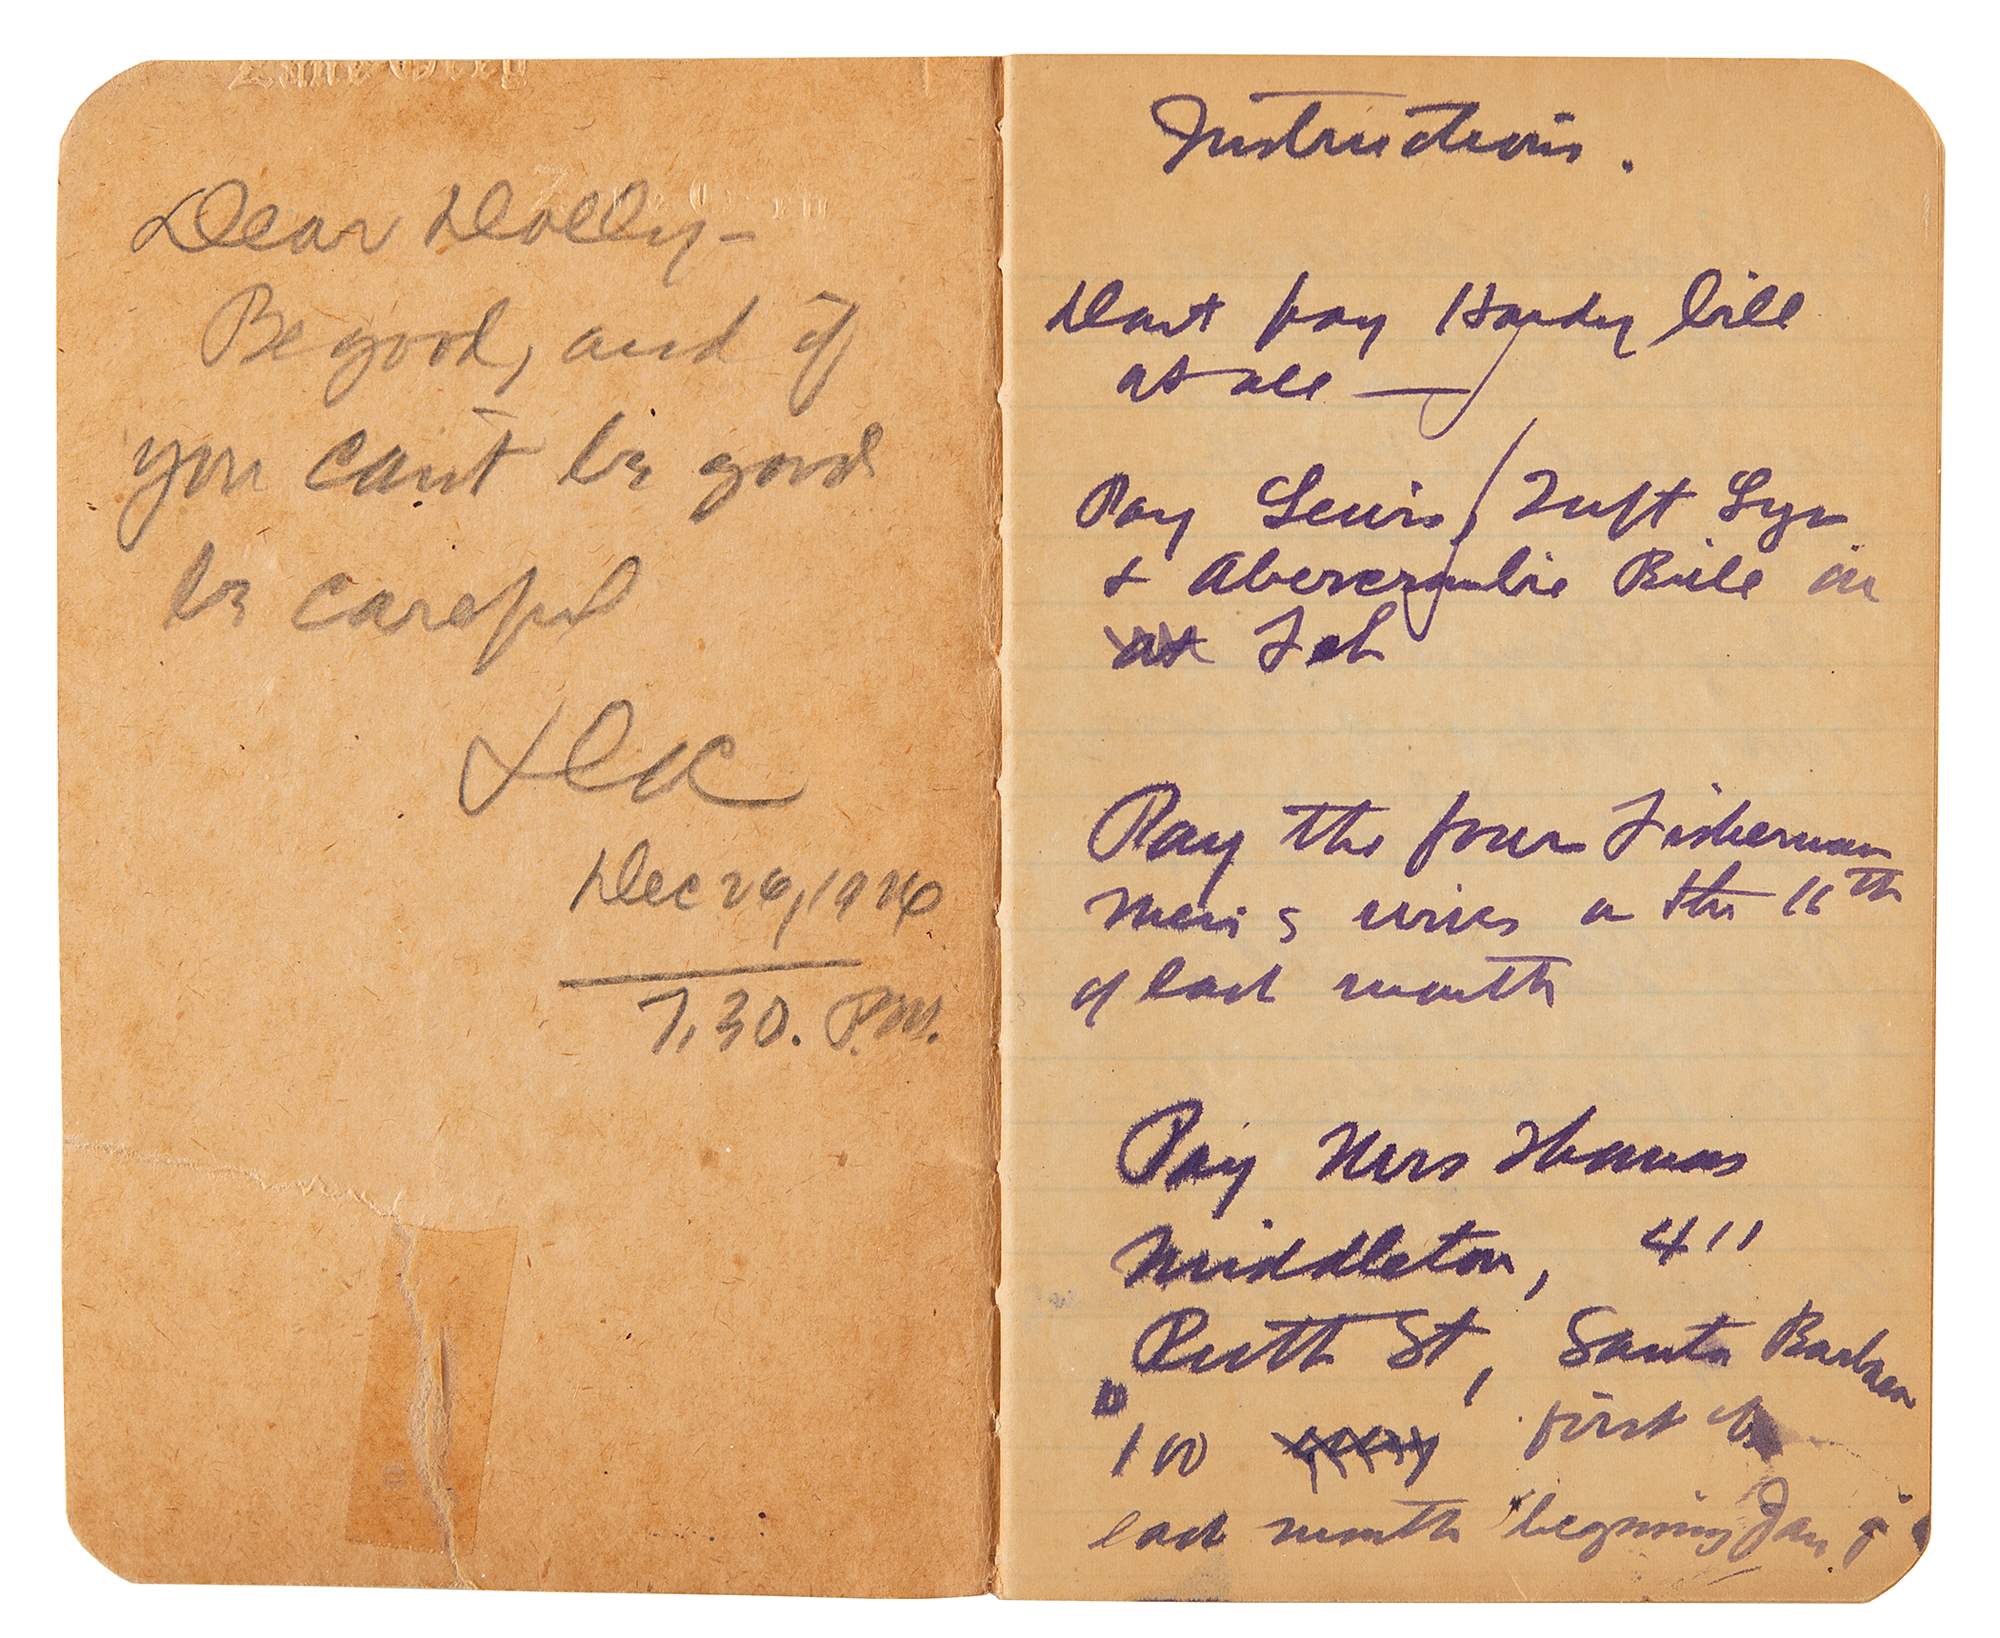 Zane Grey
Zane Grey
Dear Dolly-
Be good, and if
you can't be good
be careful
Doc
Dec 26, 1926
7.30. P.M.
Instructions.
Dont pay Hardy bill
at all —
Pay Lewis, Tuft Lyon
& Abercrombie Bill in
at Feb
Pay the four Fisherman
wives on the 15th
of each month
Pay Mrs Thomas
Middleton, 411
Ruth St, Santa Barbara
100 first of
each month begining Jan